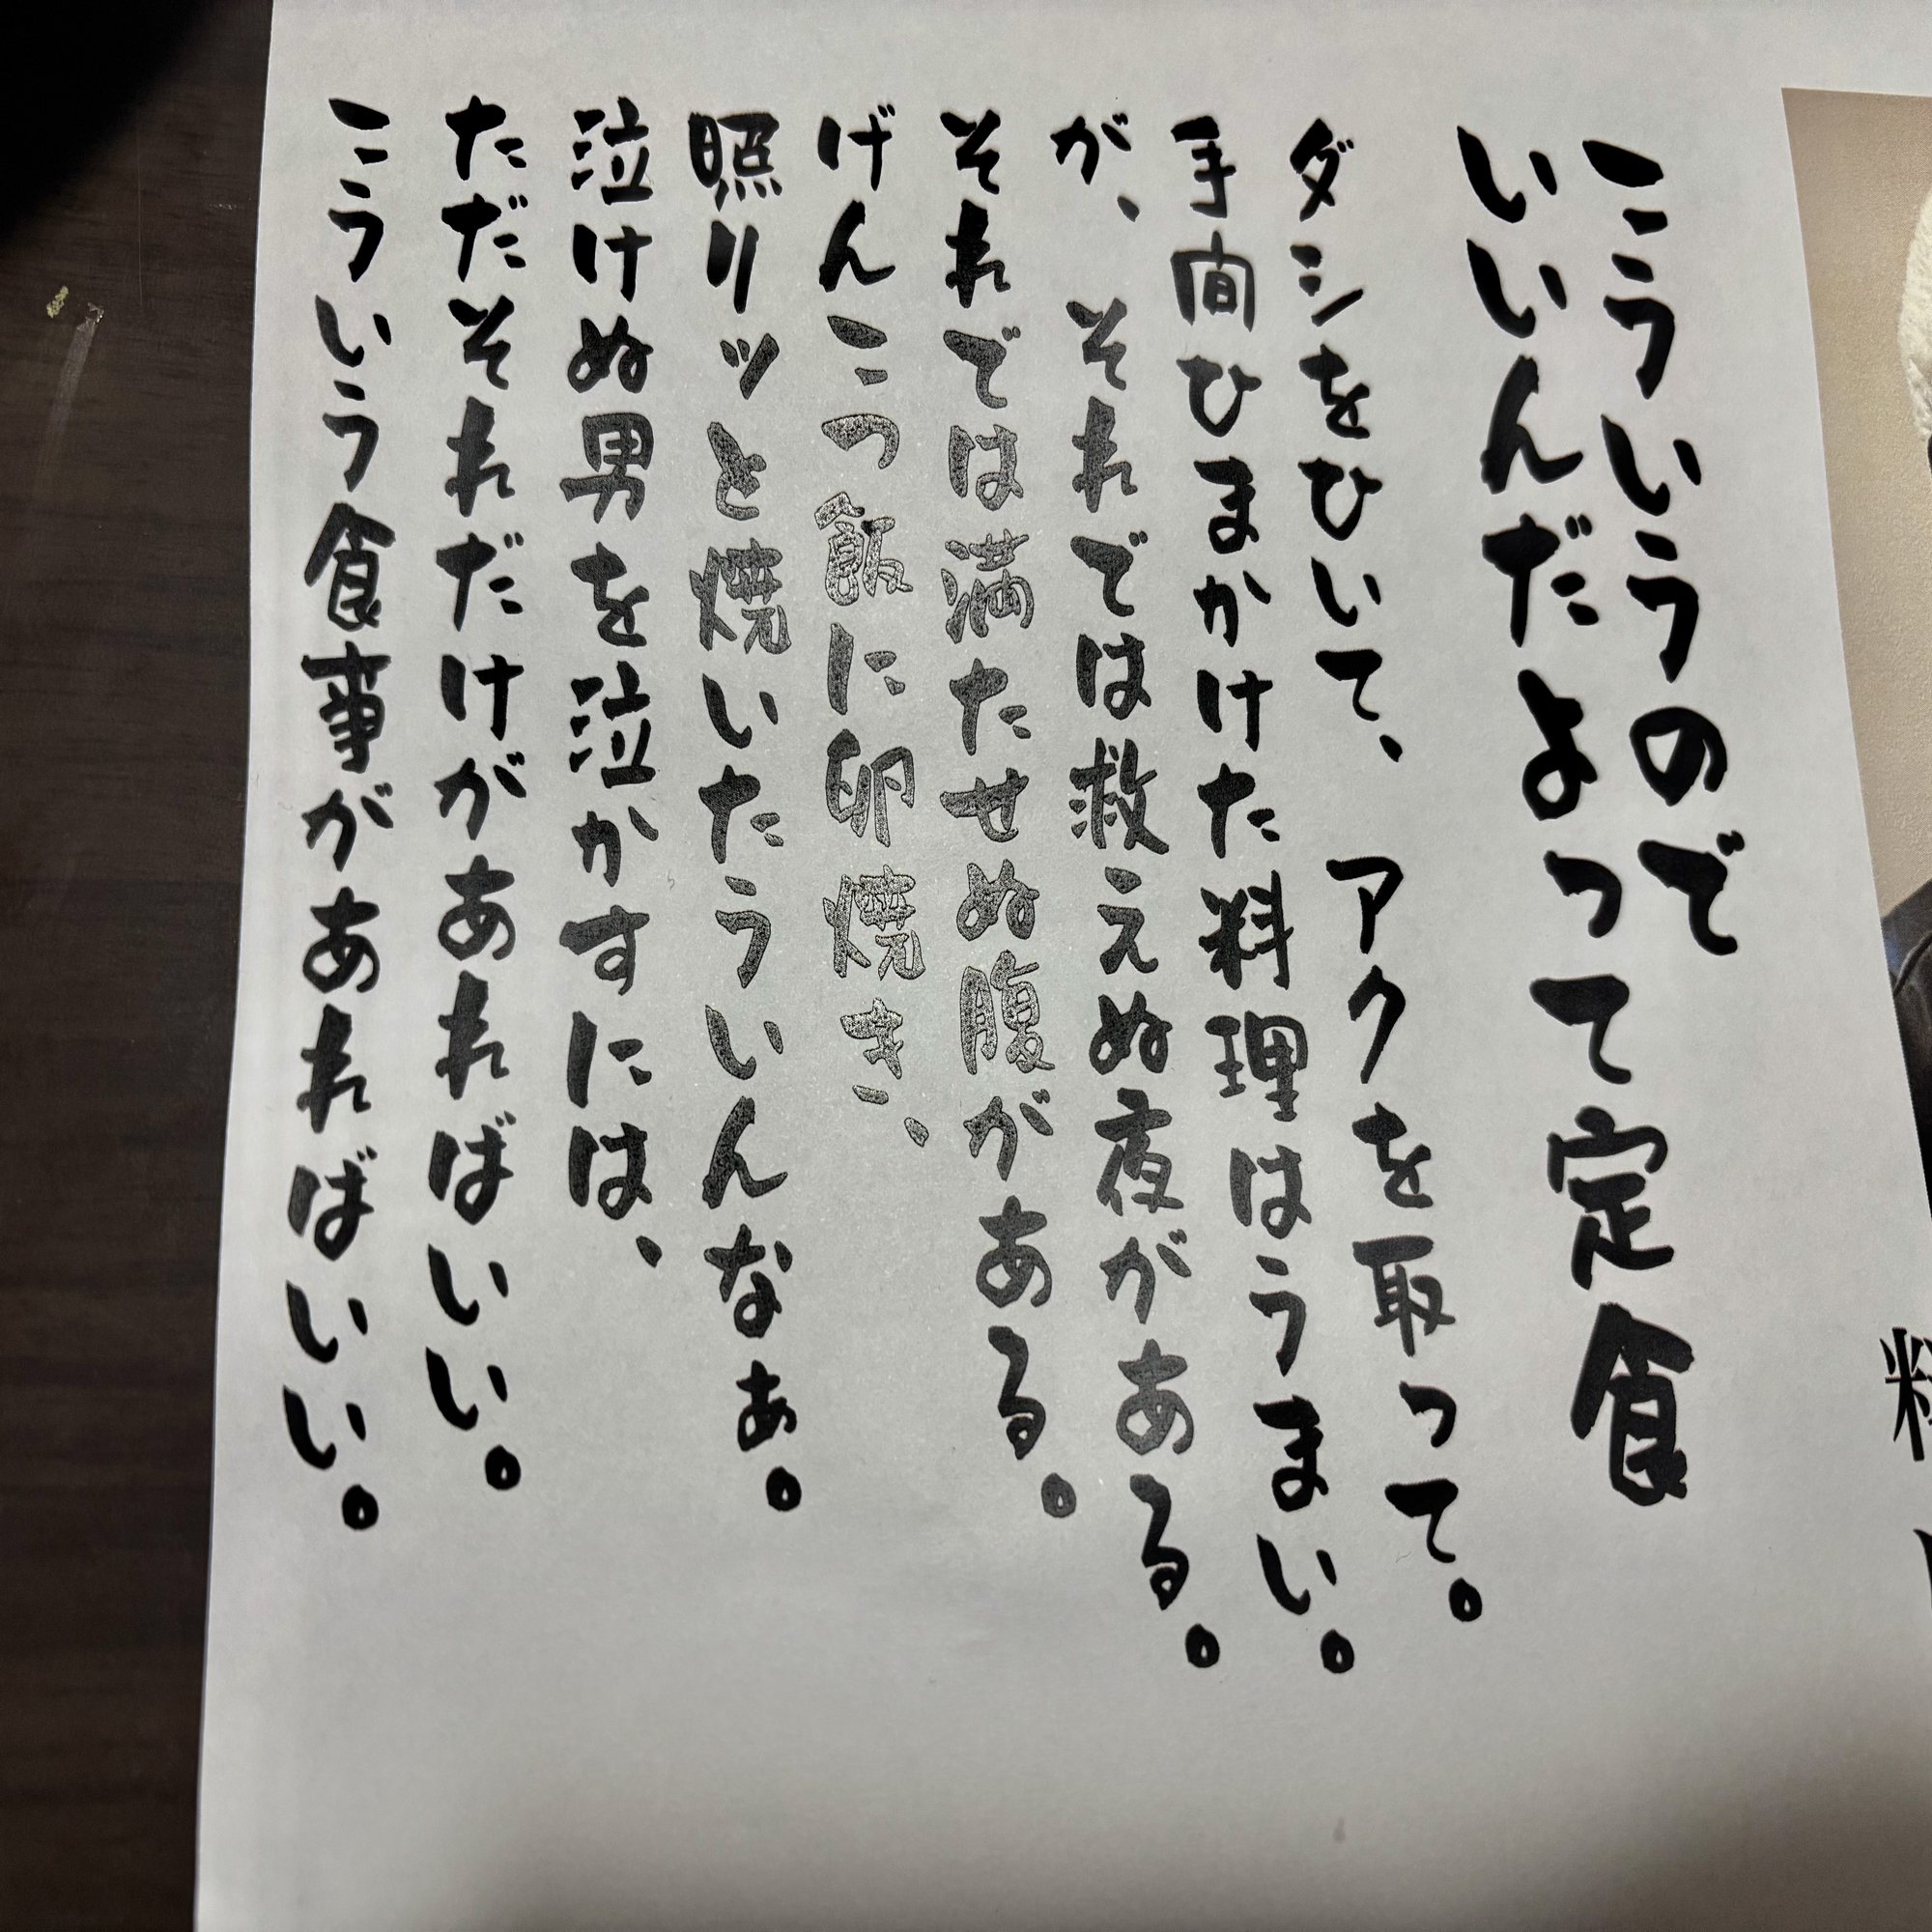 こういうので
いいんだよって定食
ダシをひいて、アクを取って。
手間ひまかけた料理はうまい。
が、それでは救えぬ夜がある。
それでは満たせぬ腹がある。
げんこつ飯に卵焼き、
照リッと焼いたういんなぁ。
泣けぬ男を泣かすには、
ただそれだけがあればいい。
こういう食事があればいい。